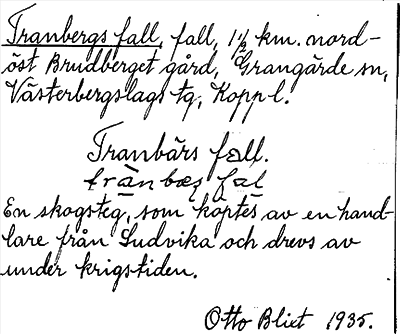 Tranbergs fall, fall, 1½ km. nord-
öst Brudberget gård, Grangärde sn,
Västerbergslags tg, Kopp l.
Tranbärs fall.
En skogsteg, som köptes av en hand-
lare från Ludvika och drevs av
under krigstiden.
Otto Blixt 1935.